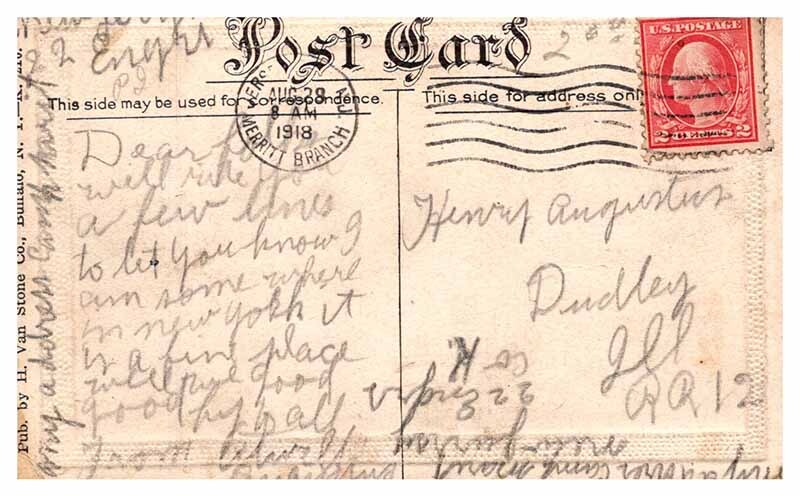 Post Card
This side may be used for correspondence.
This side for address only
U.S. POSTAGE
2 CENTS 2
AUG 28
8 AM
1918
MERRITT BRANCH
N.J.
Pub. by H. Van Stone Co., Buffalo, N. Y.
22 Engr
Dear
will rite you
a few lines
to let you know I
am some where
in new york it
is a fine place
will rite good
good by to all
from
Henry Augustus
Dudley
Ill
RR 12
22 Engr
Co K.
my address Camp